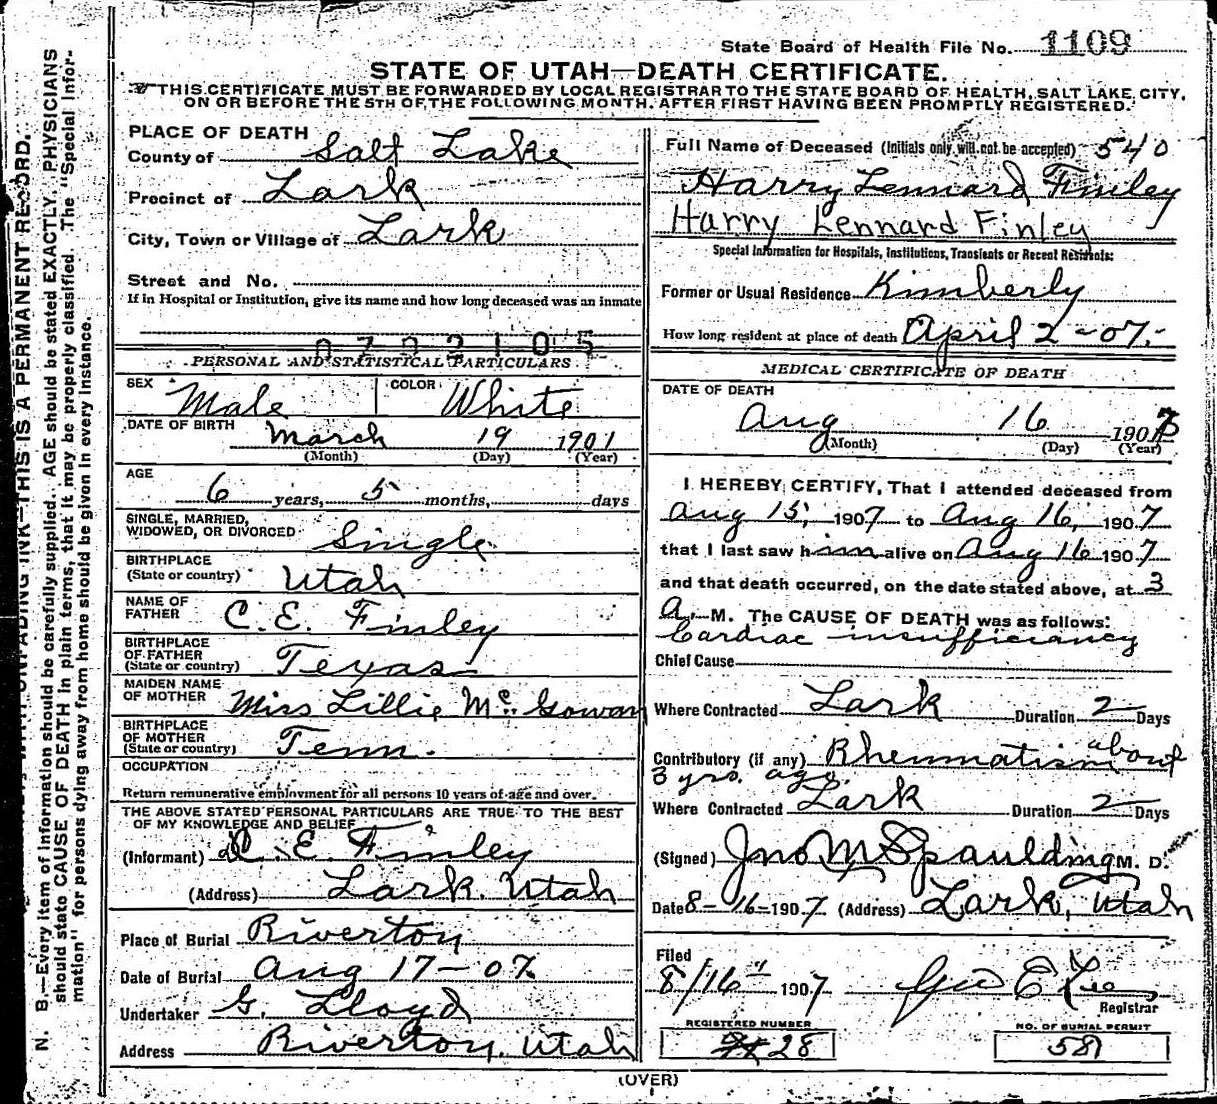 State Board of Health File No. 1109
STATE OF UTAH—DEATH CERTIFICATE.
THIS CERTIFICATE MUST BE FORWARDED BY LOCAL REGISTRAR TO THE STATE BOARD OF HEALTH, SALT LAKE CITY,
ON OR BEFORE THE 5TH OF THE FOLLOWING MONTH. AFTER FIRST HAVING BEEN PROMPTLY REGISTERED.
N. B.—Every item of information should be carefully supplied. AGE should be stated EXACTLY. PHYSICIANS
should state CAUSE OF DEATH in plain terms, that it may be properly classified. The "Special Infor-
mation" for persons dying away from home should be given in every instance.
UNFADING INK—THIS IS A PERMANENT RECORD.
PLACE OF DEATH
County of Salt Lake
Precinct of Lark
City, Town or Village of Lark
Street and No.
If in Hospital or Institution, give its name and how long deceased was an inmate
0722105
PERSONAL AND STATISTICAL PARTICULARS
SEX Male COLOR White
DATE OF BIRTH March 19 1901
(Month) (Day) (Year)
AGE
6 years, 5 months, days
SINGLE, MARRIED,
WIDOWED, OR DIVORCED Single
BIRTHPLACE
(State or country) Utah
NAME OF
FATHER C. E. Finley
BIRTHPLACE
OF FATHER
(State or country) Texas
MAIDEN NAME
OF MOTHER Miss Lillie Mc. Gowan
BIRTHPLACE
OF MOTHER
(State or country) Tenn.
OCCUPATION
Return remunerative employment for all persons 10 years of age and over.
THE ABOVE STATED PERSONAL PARTICULARS ARE TRUE TO THE BEST
OF MY KNOWLEDGE AND BELIEF
(Informant) C. E. Finley
(Address) Lark. Utah
Place of Burial Riverton
Date of Burial Aug 17-07.
Undertaker G. Lloyd
Address Riverton, Utah
Full Name of Deceased (Initials only will not be accepted) 540
Harry Lennard Finley
Harry Lennard Finley
Special Information for Hospitals, Institutions, Transients or Recent Residents:
Former or Usual Residence Kimberly
How long resident at place of death April 2-07.
MEDICAL CERTIFICATE OF DEATH
DATE OF DEATH
Aug 16 1907
(Month) (Day) (Year)
I HEREBY CERTIFY, That I attended deceased from
Aug 15, 1907 to Aug 16, 1907
that I last saw him alive on Aug 16 1907
and that death occurred, on the date stated above, at 3
A. M. The CAUSE OF DEATH was as follows:
Cardiac insufficiancy
Chief Cause
Where Contracted Lark Duration 2 Days
Contributory (if any) Rheumatism about
3 yrs. ago.
Where Contracted Lark Duration 2 Days
(Signed) Jno M Spaulding M. D.
Date 8-16-1907. (Address) Lark, Utah
Filed
8/16 1907 Geo E Lee
Registrar
REGISTERED NUMBER NO. OF BURIAL PERMIT
28 581
(OVER)